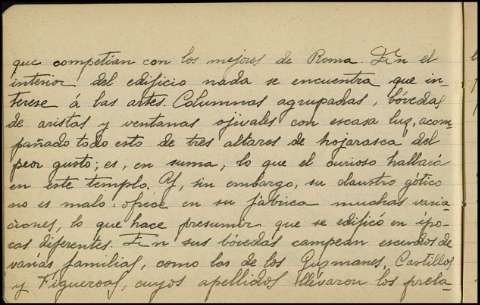 que competian con los mejores de Roma. En el
interior del edificio nada se encuentra que in-
terese á las artes. Columnas agrupadas, bóvedas
de aristas y ventanas ojivales con escasa luz, acom-
pañado todo esto de tres altares de hojarasca del
peor gusto; es, en suma, lo que el curioso hallará
en este templo. Y, sin embargo, su claustro gótico
no es malo: ofrece en su fábrica muchas varia-
ciones, lo que hace presumir que se edificó en épo-
cas diferentes. En sus bóvedas campean escudos de
varias familias, como los de los Guzmanes, Castillos
y Figueroas, cuyos apellidos llevaron los prela-